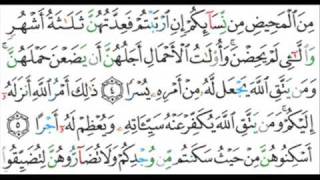 مِنَ ٱلْمَحِيضِ مِن نِّسَآئِكُمْ إِنِ ٱرْتَبْتُمْ فَعِدَّتُهُنَّ ثَلَـٰثَةُ أَشْهُرٍ
وَٱلَّـٰٓـِٔى لَمْ يَحِضْنَ ۚ وَأُو۟لَـٰتُ ٱلْأَحْمَالِ أَجَلُهُنَّ أَن يَضَعْنَ حَمْلَهُنَّ ۚ
وَمَن يَتَّقِ ٱللَّهَ يَجْعَل لَّهُۥ مِنْ أَمْرِهِۦ يُسْرًا ۝٤ ذَٰلِكَ أَمْرُ ٱللَّهِ أَنزَلَهُۥٓ
إِلَيْكُمْ ۚ وَمَن يَتَّقِ ٱللَّهَ يُكَفِّرْ عَنْهُ سَيِّـَٔاتِهِۦ وَيُعْظِمْ لَهُۥٓ أَجْرًا ۝٥
أَسْكِنُوهُنَّ مِنْ حَيْثُ سَكَنتُم مِّن وُجْدِكُمْ وَلَا تُضَآرُّوهُنَّ لِتُضَيِّقُوا۟